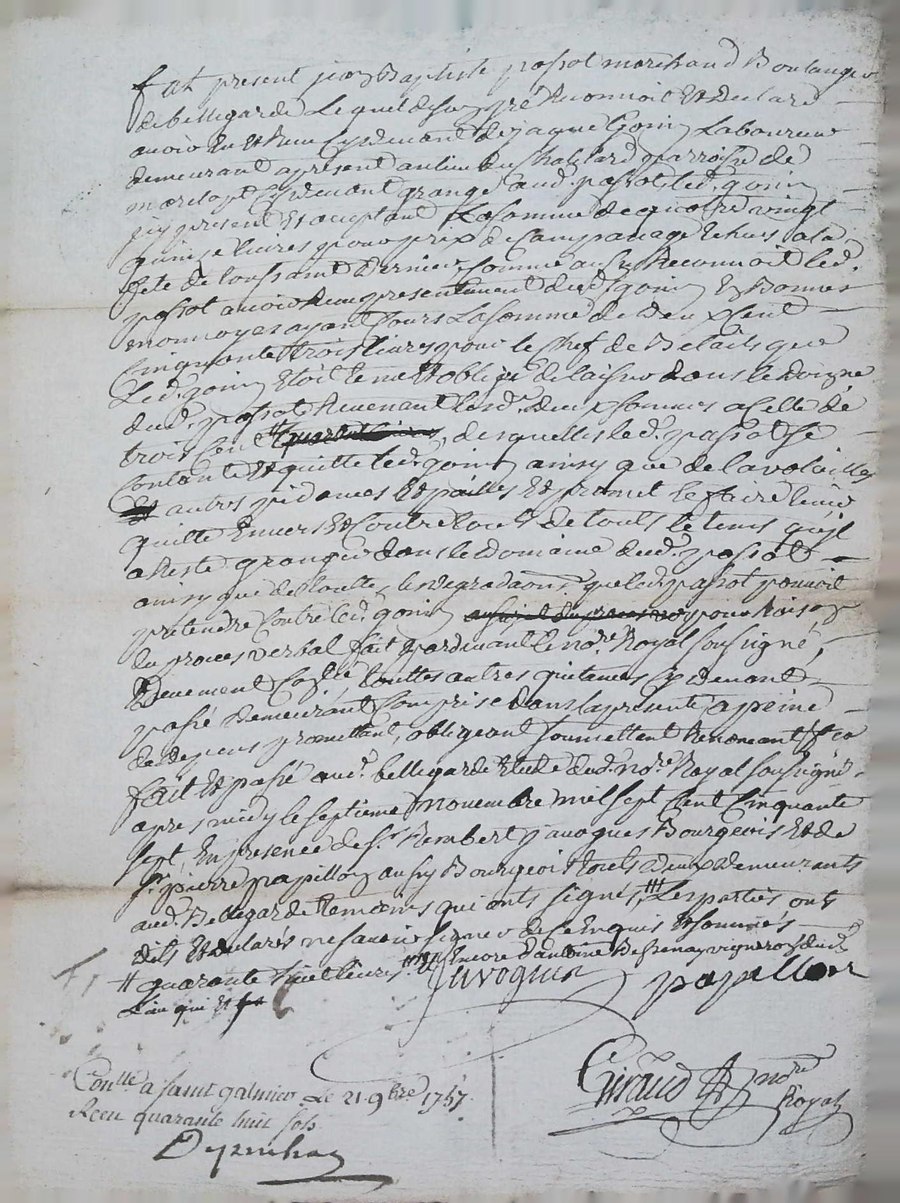 fut present jean Baptiste passot marchand Boulanger
de bellegarde Lequel de son gre Reconnoit Et declare
avoir Eu Et Receu Cydevant de jaque Gonin Laboureur
demeurant apresent au lieu du parroisse de
Cydevant granger aud. passot, led. gonin
icy present Et aceptant La somme de quatre vingt
quinze livres pour prix de Echus a la
fete de toussaint dernier, Comme aussy Reconnoit led.
passot avoir Receu presentement dud. gonin En Bonnes
monnoyes ayant Cours La somme de deux Cent
Cinquante trois livres pour le Chef de Betails que
Led. gonin Etoit tenu Et obligé de laisser dans le domaine
dud. passot Revenant lesd. deux sommes a Celle de
trois Cent # quarante livres, desquelles led. passot se
Contente Et quitte led. gonin ainsy que de la volailles
Et autres Et pailles Et promet le faire tenir
quitte Envers Et Contre tous de tout le tems qu'il
a Resté granger dans le Domaine dud. passot
ainsy que de touttes les degradaons. que led. passot pouroit
pretendre Contre led. gonin pour Raison
du proces verbal fait pardevant le nore. Royal soussigné,
touttes autres quitances Cydevant
passé demeurant Comprise dans la presente a peine
de depens promettant, obligeant soumettant Renonceant &a
fait Et passé aud. bellegarde Etude dud. nore. Royal soussigné
apres midy le septieme novembre mil sept Cent Cinquante
sept, En presence de Sr. Rembert javogues Bourgeois Et de
Sr. pierre papillon aussy Bourgeois touts deux demeurants
aud. Bellegarde temoins qui onts signés, ### Les parties ont
dits Et declarés ne savoir signer de ce Enquis Et sommés
# quarante huit livres ### Et Encore d'antoine vigneron dud.
Lieu qui Et
Javogues
papillon
Giraud nore
Royal
Conllé a saint galmier Le 21 9bre 1757
Receu quarante huit sols